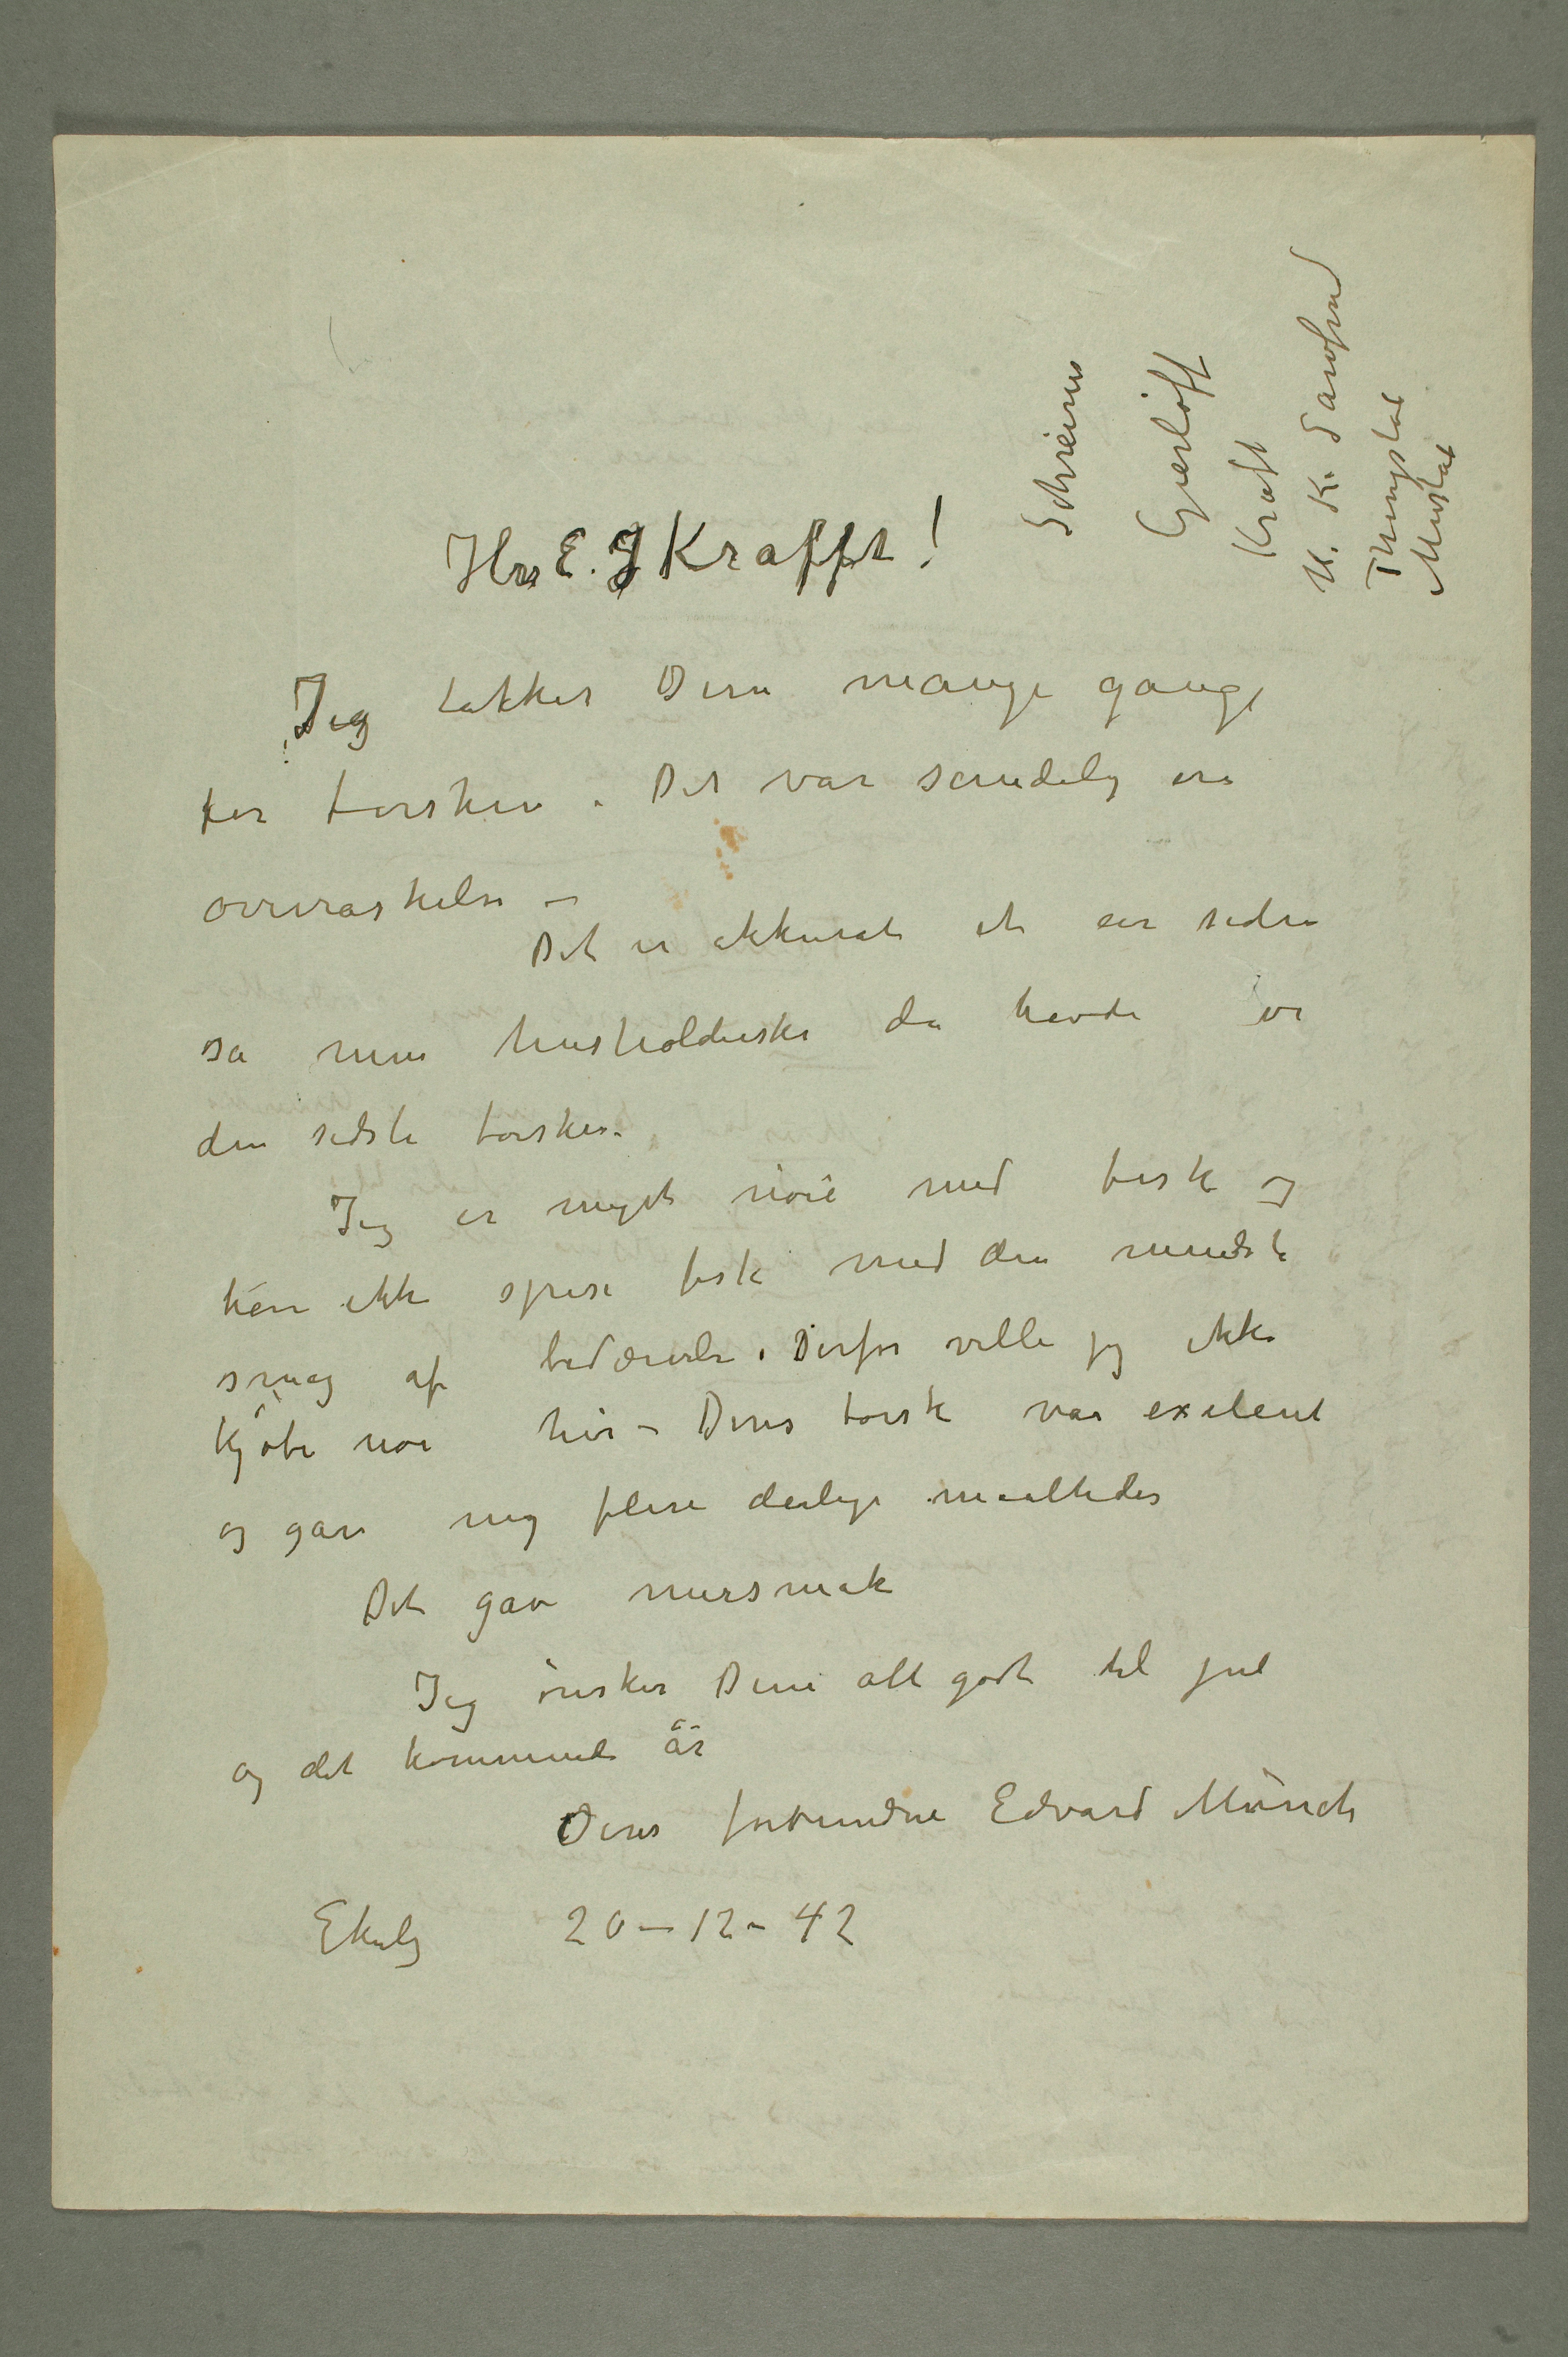 Schreiner
Gierløff
Kraft
Thingstad
Mustad
Hrr E. J Krafft!
Jeg takker Dem mange gange
for torsken. Det var sandelig en
overraskelse –
Det er akkurat et aar siden
sa min husholderske da havde vi
den sidste torsken.
Jeg er meget nøie med fisk og
kan ikke spise fisk med den mindste
smag af bedærvelse. Derfor ville jeg ikke
kjøbe noe her – Deres torsk var exelent
og gav mig flere deilige maaltider
Det gav mersmak
Jeg ønsker Dem alt godt til jul
og det kommende år
Deres forbundne Edvard Munch
Ekely 20–12–42